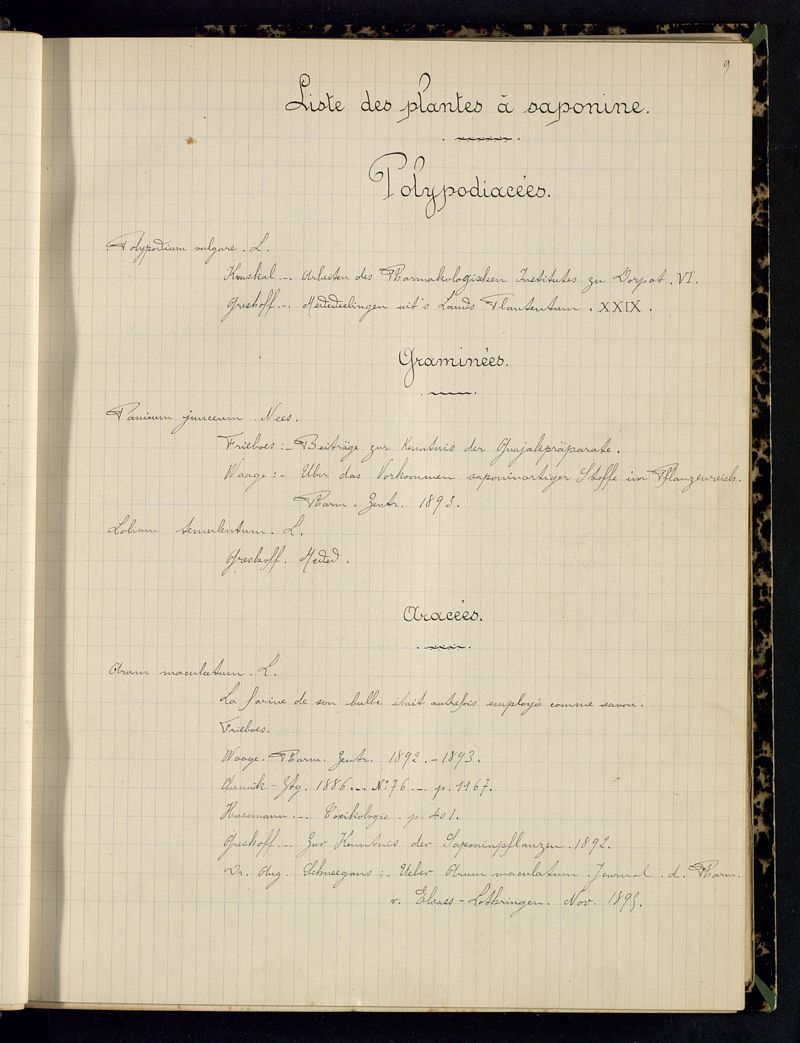 9
Liste des plantes à saponine.
Polypodiacées.
Polypodium vulgare. L.
Kruskal. - Arbeiten des Pharmakologischen Institutes zu Dorpat. VI.
Greshoff. - Mededeelingen uit's Lands Plantentuin. XXIX.
Graminées.
Panicum junceum. Nees.
Frieboes: - Beiträge zur Kenntnis der Guajakpräparate.
Waage: - Uber das Vorkommen saponinartiger Stoffe im Pflanzenreich.
Pharm. Zentr. 1893.
Lolium temulentum. L.
Greshoff. Meded.
Aracées.
Arum maculatum. L.
La farine de son bulbe était autrefois employée comme savon.
Frieboes.
Waage. Pharm. Zentr. 1892. - 1893.
Chemik-Ztg. 1886. - No 76. - p. 1167.
Husemann. - Toxikologie. p. 401.
Greshoff. - Zur Kenntnis der Saponinpflanzen. 1892.
Dr. Aug. Schneegans: - Ueber Arum maculatum. Journal. d. Pharm.
v. Elsass-Lothringen. Nov. 1895.